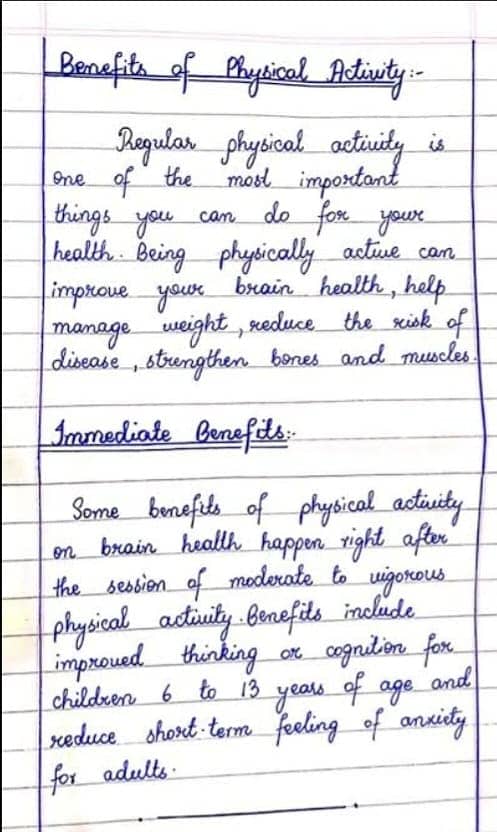 Benefits of Physical Activity:-
Regular physical activity is
one of the most important
things you can do for your
health. Being physically active can
improve your brain health, help
manage weight, reduce the risk of
disease, strengthen bones and muscles.
Immediate Benefits:-
Some benefits of physical activity
on brain health happen right after
the session of moderate to vigorous
physical activity. Benefits include
improved thinking or cognition for
children 6 to 13 years of age and
reduce short-term feeling of anxiety
for adults.